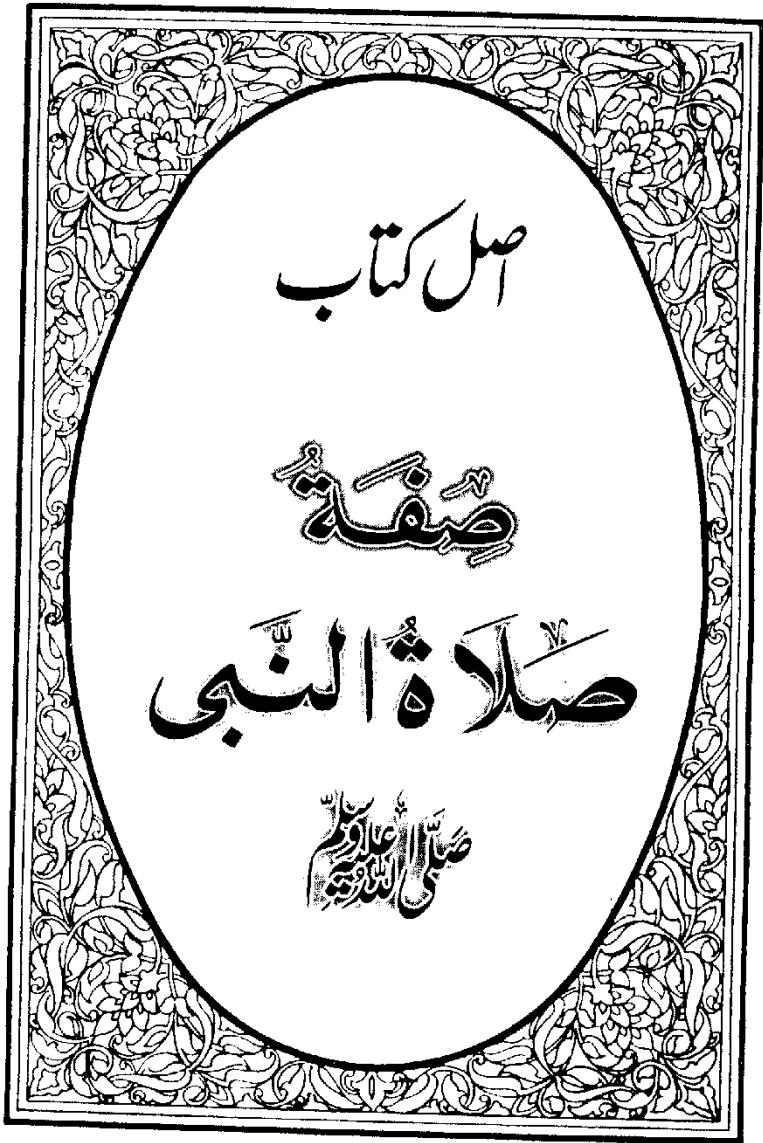 اصل کتاب
صِفَةُ
صَلَاةُ النَّبی
صَلَّی اللہُ عَلَیْہِ وَسَلَّمَ